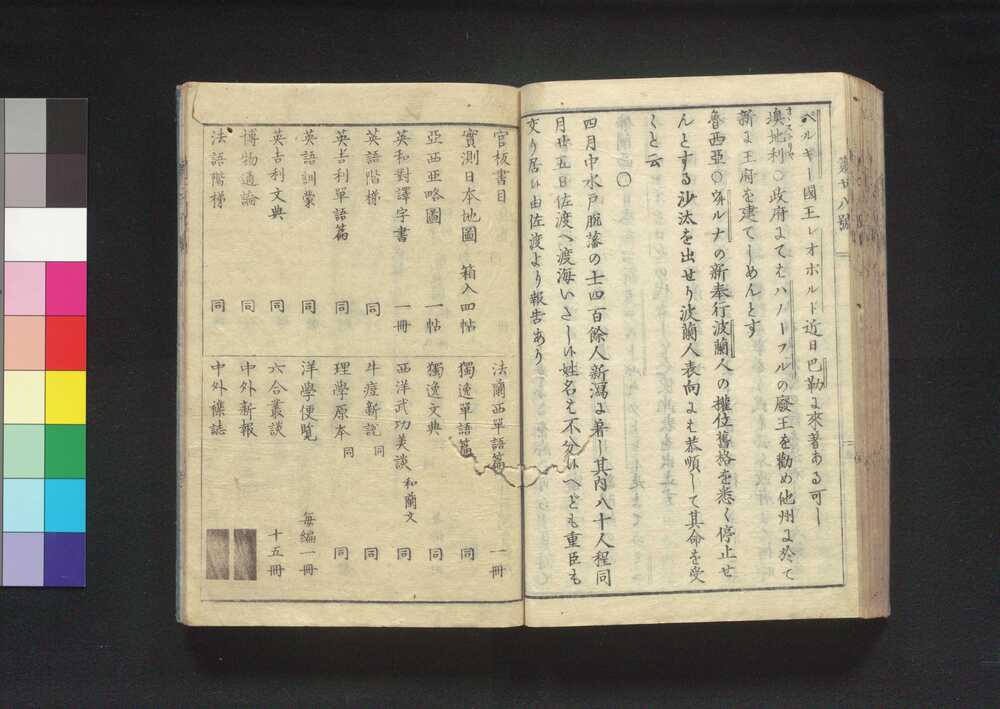 第廿八號
ベルギー國王レオホルド近日巴勒に來着ある可し
澳地利○政府にてはハノーフルの廢王を勸め他州に於て
新に王府を建てしめんとす
魯西亞○ウィルナの新奉行波蘭人の權位舊格を悉く停止せ
んとする沙汰を出せり波蘭人表向には恭順して其命を受
くと云
○
四月中水戸脱藩の士四百餘人新瀉に着し其内八十人程同
月廿五日佐渡へ渡海いたし候姓名は不分候へとも重臣も
交り居候由佐渡より報告あり
官板書目
實測日本地圖 箱入四帖
亞西亞略圖 一帖
英和對譯字書 一冊
英語階梯 同
英吉利單語篇 同
英語訓蒙 同
英吉利文典 同
博物通論 同
法語階梯 同
法蘭西單語篇 一冊
獨逸單語篇 同
獨逸文典 同
西洋武功美談 和蘭文 同
牛痘新説 同 同
理學原本 同 同
洋學便覽 毎編一冊
六合叢談 十五冊
中外新報
中外襍誌